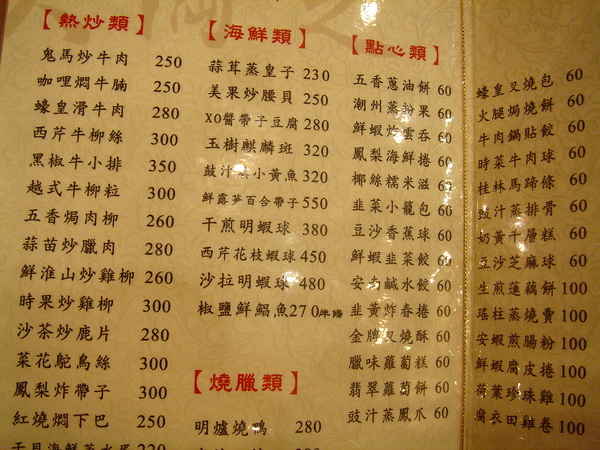 【熱炒類】
鬼馬炒牛肉 250
咖哩燜牛腩 250
蠔皇滑牛肉 280
西芹牛柳絲 300
黑椒牛小排 350
越式牛柳粒 300
五香焗肉柳 260
蒜苗炒臘肉 280
鮮淮山炒雞柳 260
時果炒雞柳 300
沙茶炒鹿片 280
菜花鴕鳥絲 300
鳳梨炸帶子 300
紅燒燜下巴 250
干貝海鮮蒸水蛋 220
【海鮮類】
蒜茸蒸皇子 230
美果炒腰貝 250
XO醬帶子豆腐 280
玉樹麒麟斑 320
豉汁蒸小黃魚 320
鮮露笋百合帶子 550
干煎明蝦球 380
西芹花枝蝦球 450
沙拉明蝦球 480
椒鹽鮮鯧魚 270半條
【燒臘類】
明爐燒鴨 280
【點心類】
五香蔥油餅 60
潮州蒸粉果 60
鮮蝦炸雲吞 60
鳳梨海鮮捲 60
椰絲糯米滋 60
韭菜小籠包 60
豆沙香蕉球 60
鮮蝦韭菜餃 60
安勻鹹水餃 60
韭黃炸春捲 60
金牌叉燒酥 60
臘味蘿蔔糕 60
翡翠蘿蔔餅 60
豉汁蒸鳳爪 60
蠔皇叉燒包 60
火腿焗燒餅 60
牛肉鍋貼餃 60
時菜牛肉球 60
桂林馬蹄條 60
豉汁蒸排骨 60
奶黃千層糕 60
豆沙芝麻球 60
生煎蓮藕餅 100
瑤柱蒸燒賣 100
安蝦煎腸粉 100
鮮蝦腐皮捲 100
荷葉珍珠雞 100
腐衣田雞卷 100